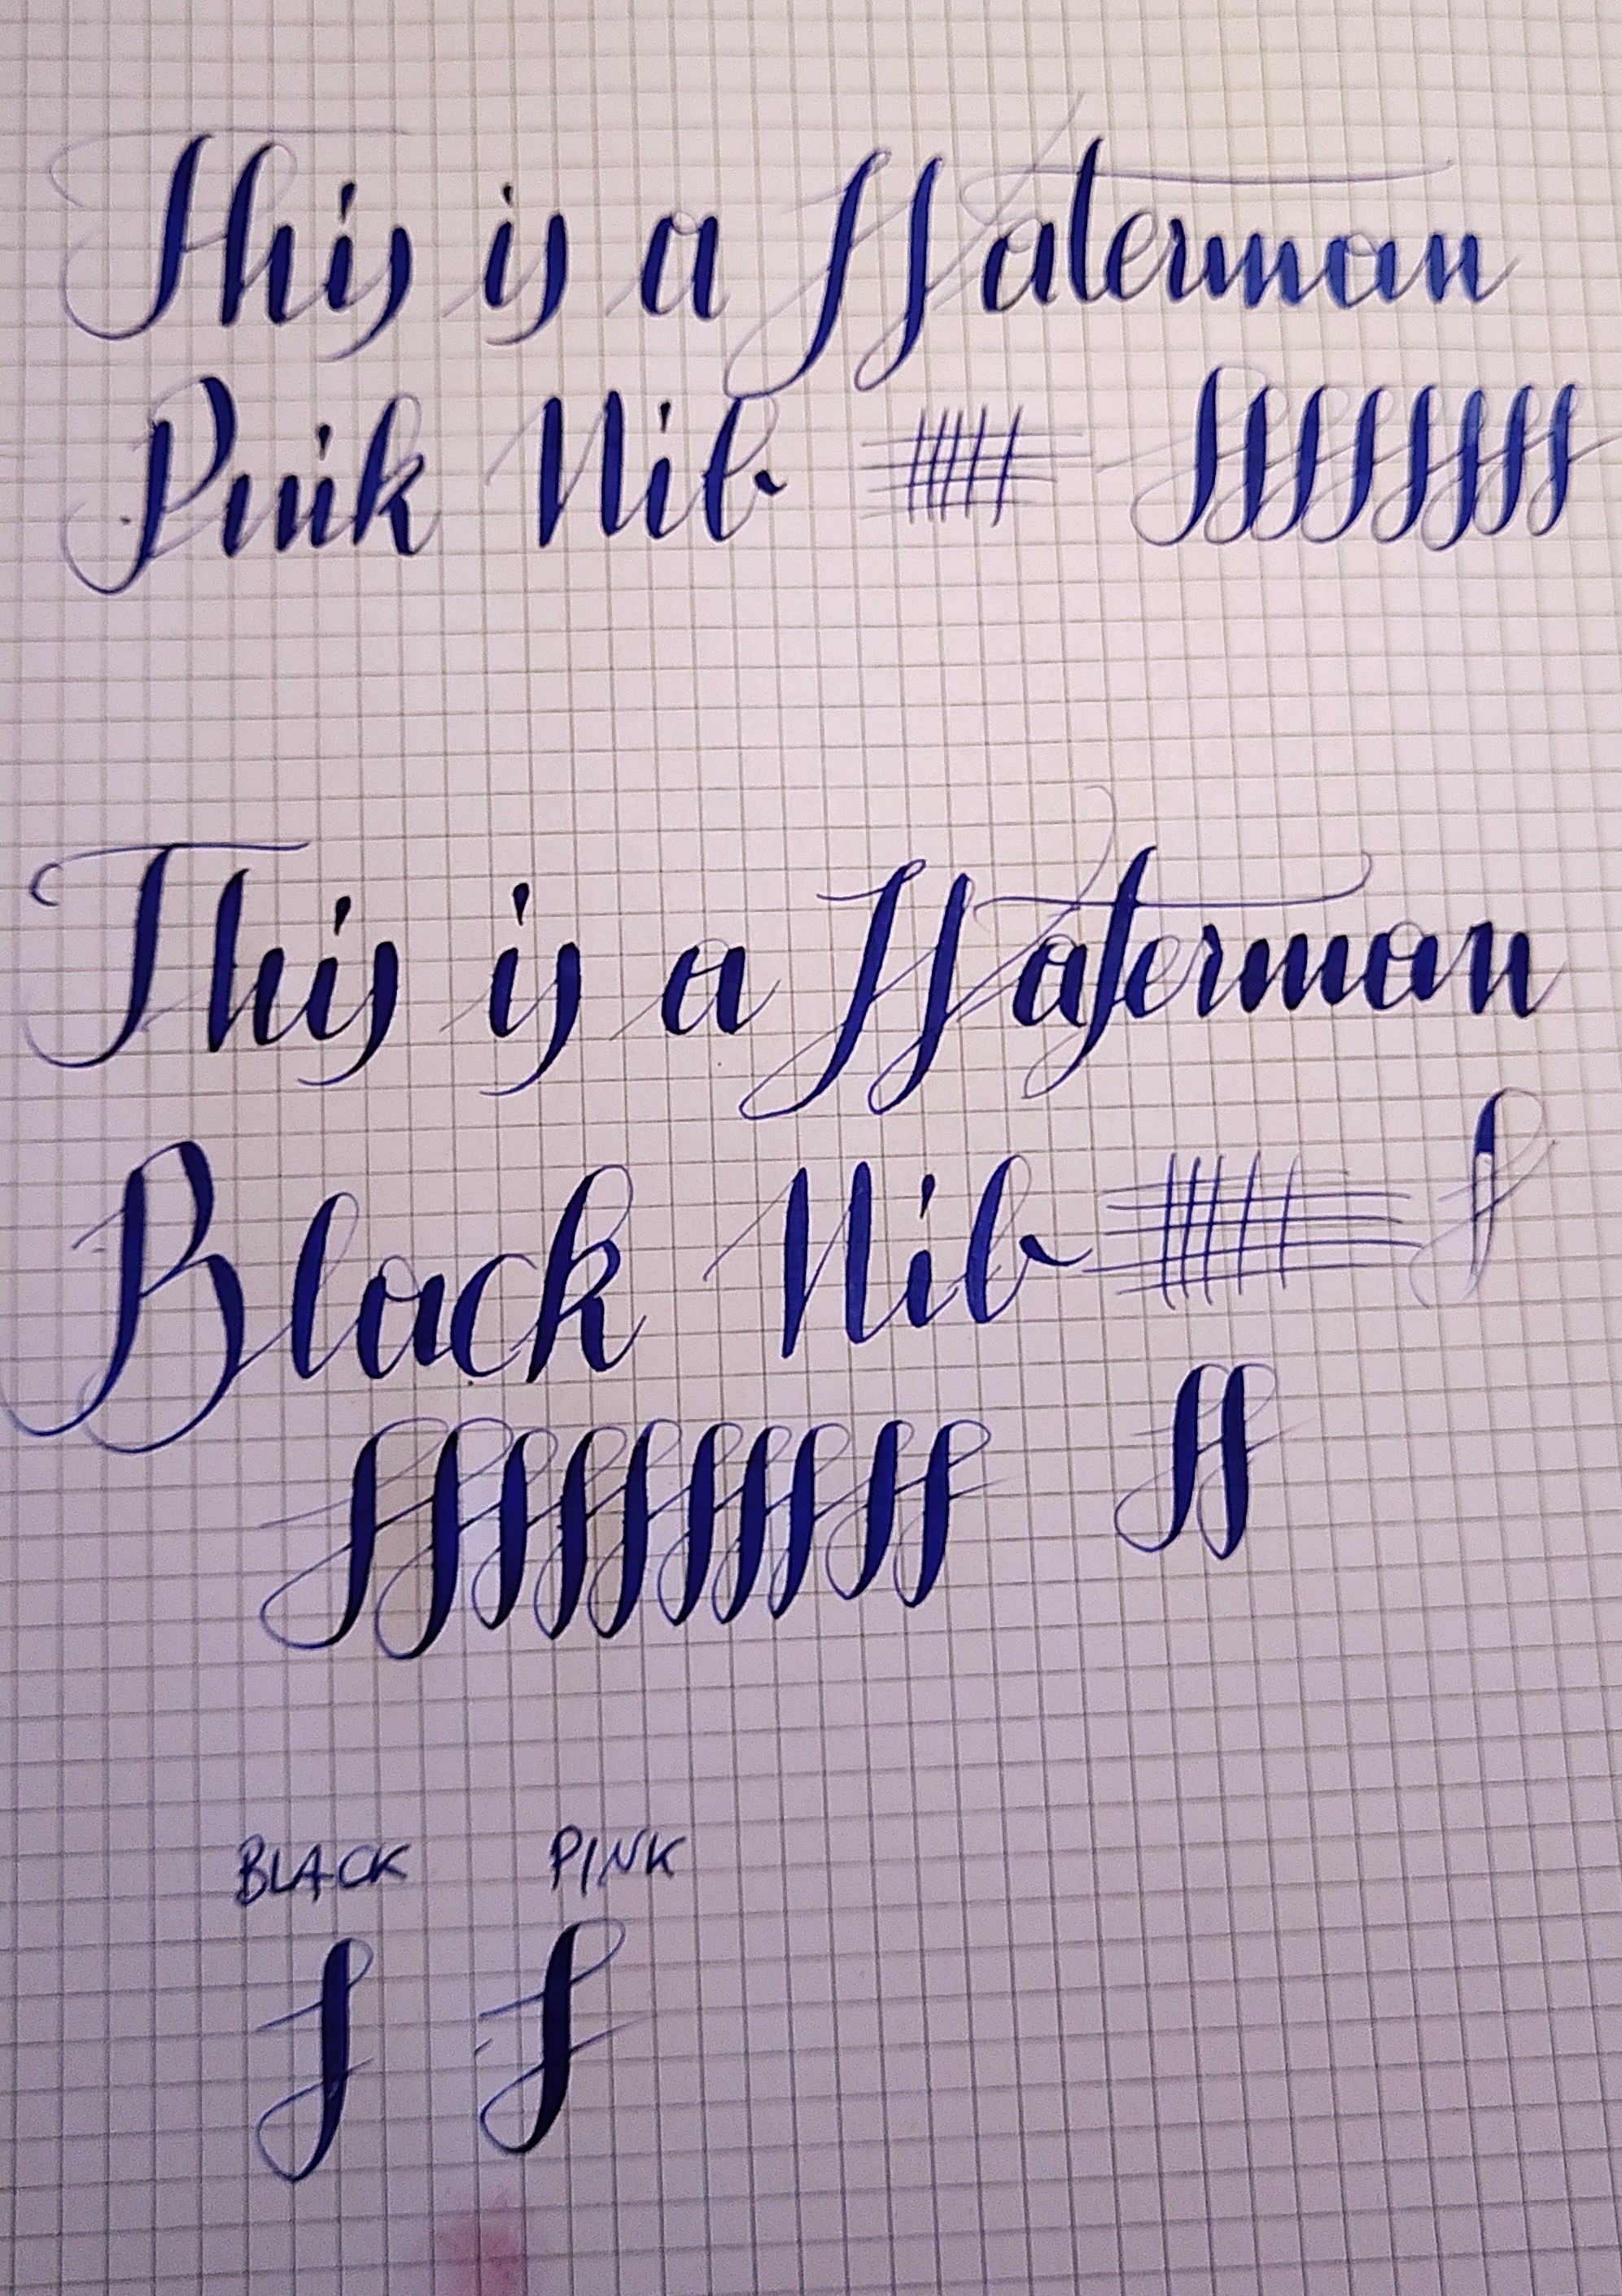 This is a Waterman
Pink Nib fffffff
This is a Waterman
Black Nib f
ffffffffff ff
BLACK PINK
f f